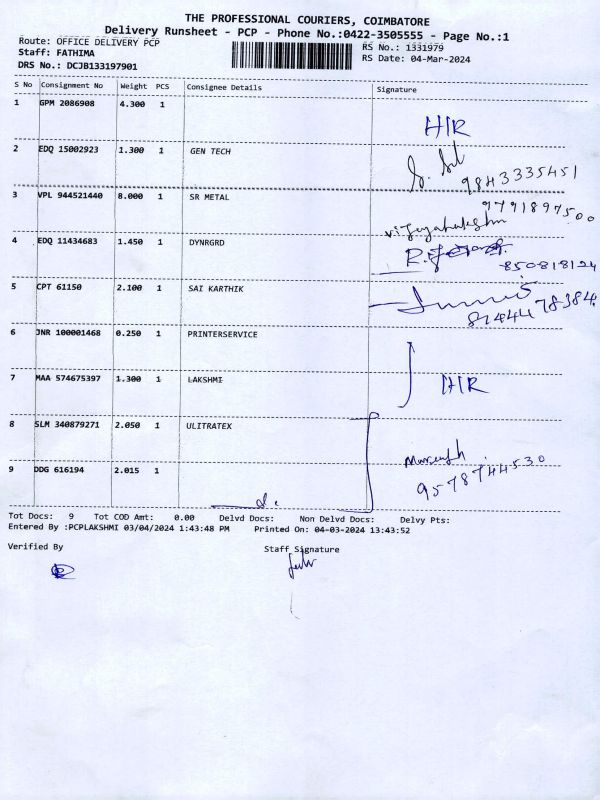 THE PROFESSIONAL COURIERS, COIMBATORE
Delivery Runsheet - PCP - Phone No.:0422-3505555 - Page No.:1
Route: OFFICE DELIVERY PCP
Staff: FATHIMA
DRS No.: DCJB133197901
RS No.: 1331979
RS Date: 04-Mar-2024
S No Consignment No Weight PCS Consignee Details Signature
1 GPM 2086908 4.300 1
H/R
2 EDQ 15002923 1.300 1 GEN TECH
9843335451
3 VPL 944521440 8.000 1 SR METAL
9791897500
vijayalakshmi
4 EDQ 11434683 1.450 1 DYNRGRD
850818124
5 CPT 61150 2.100 1 SAI KARTHIK
8744478384
6 JNR 100001468 0.250 1 PRINTERSERVICE
7 MAA 574675397 1.300 1 LAKSHMI
H/R
8 SLM 340879271 2.050 1 ULITRATEX
9 DDG 616194 2.015 1
9578744530
Tot Docs: 9 Tot COD Amt: 0.00 Delvd Docs: Non Delvd Docs: Delvy Pts:
Entered By :PCPLAKSHMI 03/04/2024 1:43:48 PM Printed On: 04-03-2024 13:43:52
Verified By Staff Signature